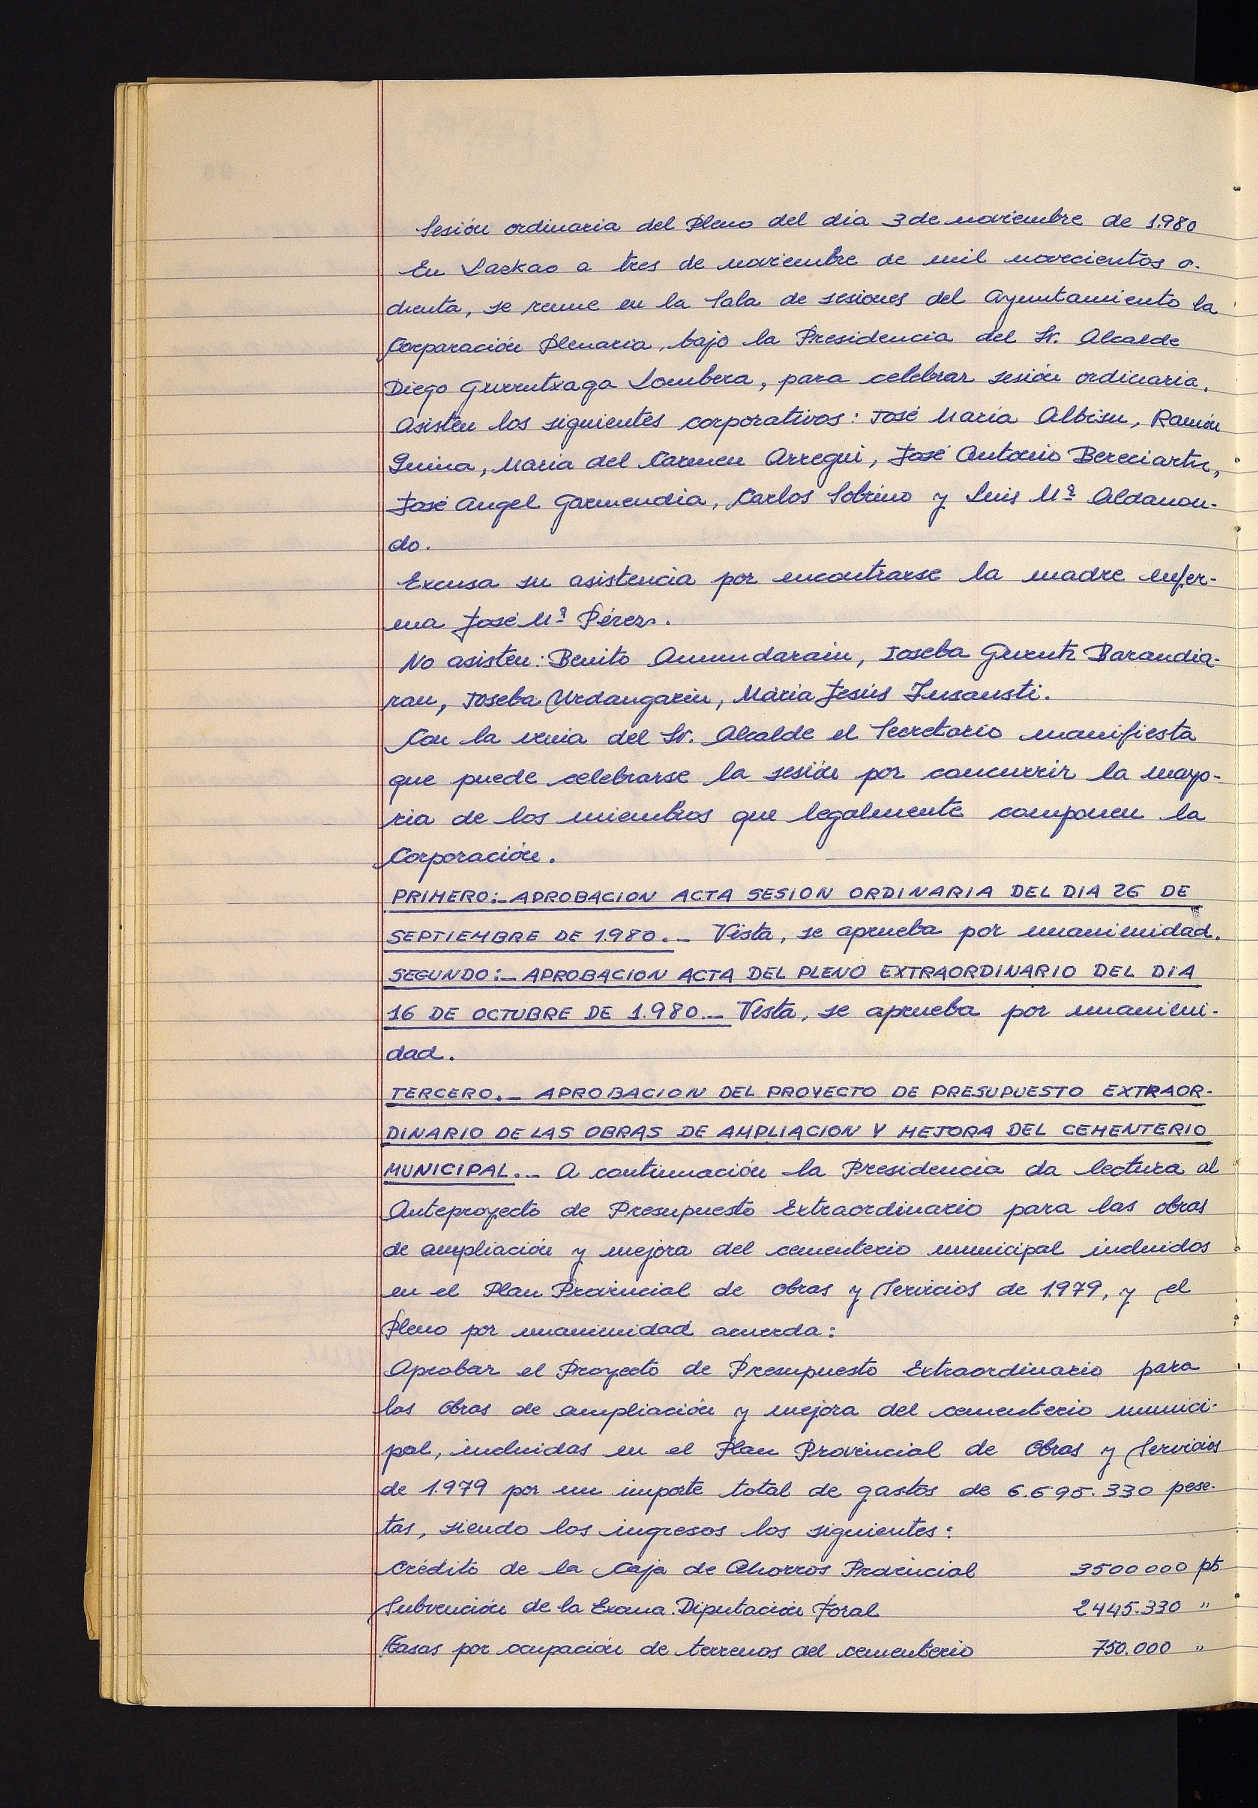 Sesión ordinaria del Pleno del día 3 de noviembre de 1.980
En Lazkao a tres de noviembre de mil novecientos o-
chenta, se reune en la Sala de sesiones del Ayuntamiento la
Corporación Plenaria, bajo la Presidencia del Sr. Alcalde
Diego Gurrutxaga Lombera, para celebrar sesión ordinaria.
Asisten los siguientes corporativos: José Maria Albisu, Ramón
Guina, Maria del Carmen Arregui, José Antonio Bereciartu,
José Angel Garmendia, Carlos Sobrino y Luis Mª Aldanon-
do.
Excusa su asistencia por encontrarse la madre enfer-
ma José Mª Pérez.
No asisten: Benito Amundarain, Ioseba Gurutz Barandia-
ran, Joseba Urdangarin, Maria Jesús Insausti.
Con la venia del Sr. Alcalde el Secretario manifiesta
que puede celebrarse la sesión por concurrir la mayo-
ria de los miembros que legalmente componen la
Corporación.
PRIMERO:- APROBACION ACTA SESION ORDINARIA DEL DIA 26 DE
SEPTIEMBRE DE 1.980.- Vista, se aprueba por unanimidad.
SEGUNDO:- APROBACION ACTA DEL PLENO EXTRAORDINARIO DEL DIA
16 DE OCTUBRE DE 1.980.- Vista, se aprueba por unanimi-
dad.
TERCERO.- APROBACION DEL PROYECTO DE PRESUPUESTO EXTRAOR-
DINARIO DE LAS OBRAS DE AMPLIACION Y MEJORA DEL CEMENTERIO
MUNICIPAL.- A continuación la Presidencia da lectura al
Anteproyecto de Presupuesto Extraordinario para las obras
de ampliación y mejora del cementerio municipal incluidos
en el Plan Provincial de obras y Servicios de 1.979, y el
Pleno por unanimidad acuerda:
Aprobar el Proyecto de Presupuesto Extraordinario para
las obras de ampliación y mejora del cementerio munici-
pal, incluidas en el Plan Provincial de Obras y Servicios
de 1.979 por un importe total de gastos de 6.695.330 pese-
tas, siendo los ingresos los siguientes:
Crédito de la Caja de Ahorros Provincial 3500000 pts
Subvención de la Excma. Diputación Foral 2445.330 "
Tasas por ocupación de terrenos del cementerio 750.000 "